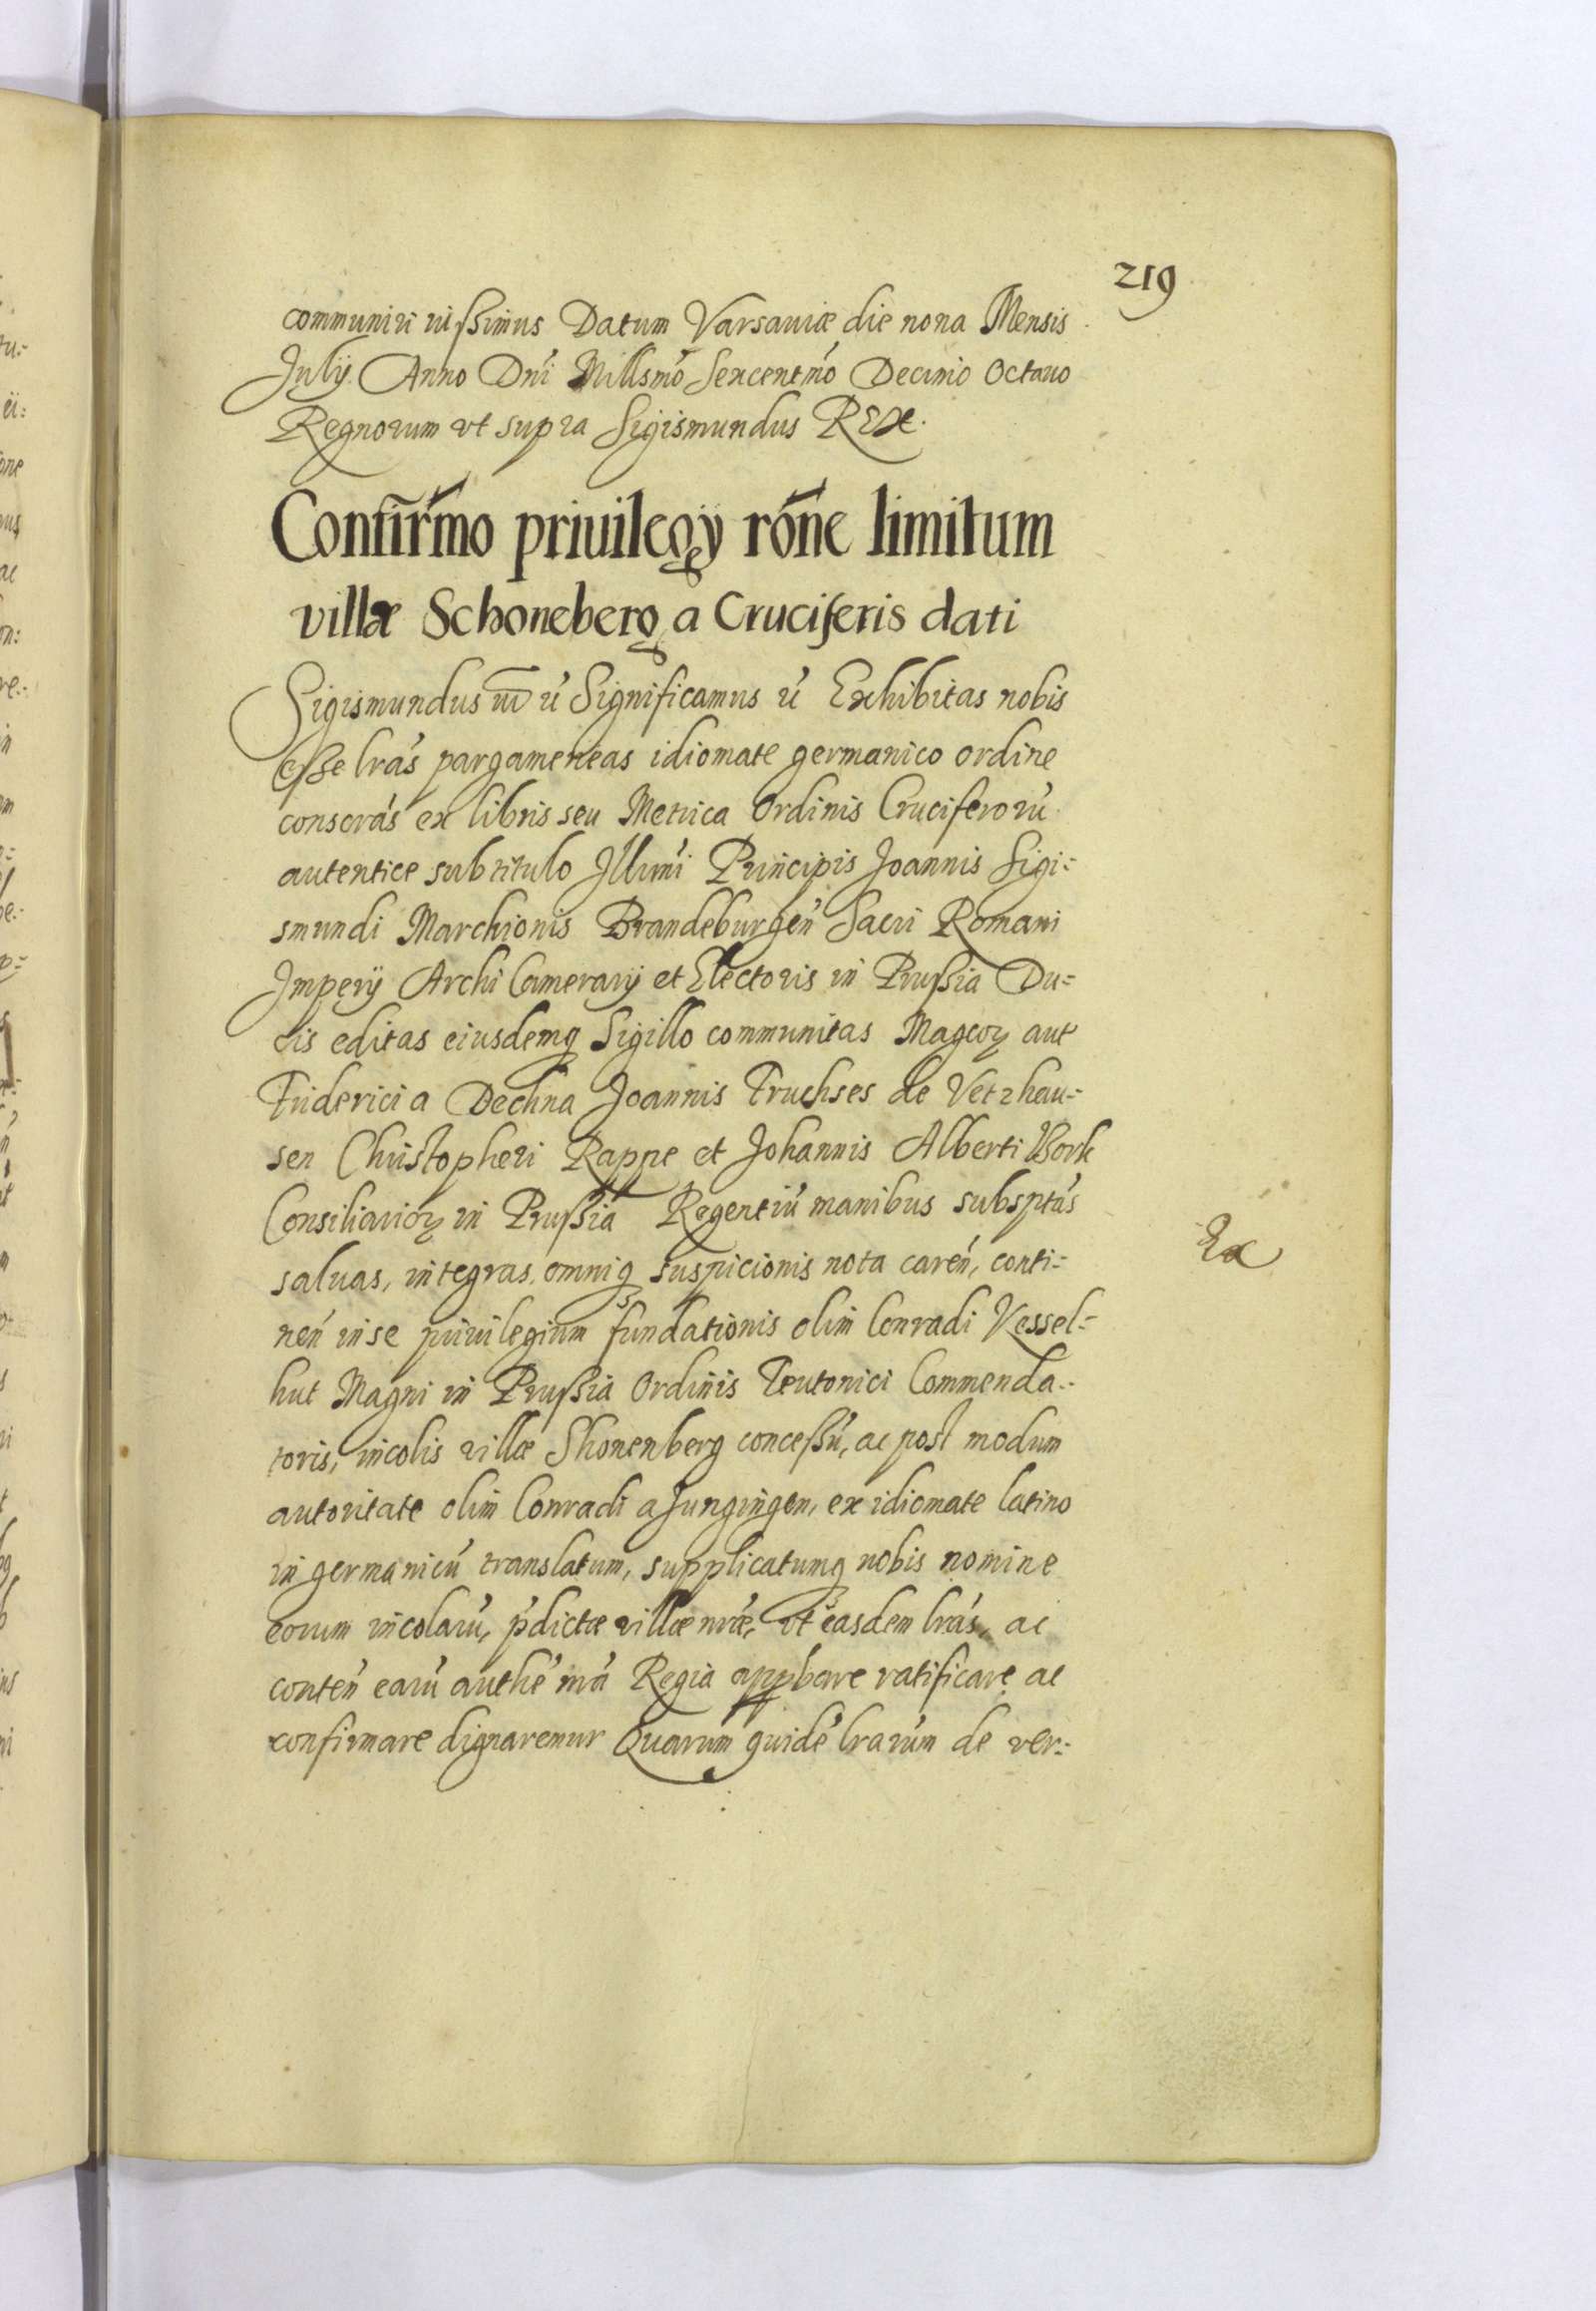 219
communiri iussimus Datum Varsaviæ die nona Mensis
Julij Anno Dni Millsmo Sexcentmo Decimo Octauo
Regnorum vt supra Sigismundus REX.
Confirmo priuilegij rone limitum
villæ Schoneberg a Cruciferis dati
Sigismundus Significamus Exhibitas nobis
esse lras pargameneas idiomate germanico ordine
conscras ex libris seu Metrica Ordinis Cruciferorũ
autentice sub titulo Illmi Principis Joannis Sigi=
smundi Marchionis Brandeburgen Sacri Romani
Imperij Archi Camerarij et Electoris in Prussia Du=
cis editas eiusdemq Sigillo communitas Magcoꝝ aut
Friderici a Dechna Joannis Truchses de Vetzhau=
sen Christopheri Rappe et Johannis Alberti Bork
Consiliarioꝝ in Prussia Regentiũ manibus subsptas
saluas, integras, omniq suspicionis nota caren, conti=
Ex
nen in se priuilegium fundationis olim Conradi Vessel=
hut Magni in Prussia Ordinis Teutonici Commenda=
toris, incolis villæ Shonenberg concessũ, ac post modum
autoritate olim Conradi a Jungingen, ex idiomate latino
in germanicũ translatum, supplicatumq nobis nomine
eorum incolarũ, pdictæ villæ nræ, vt easdem lras, ac
conten earũ authe nra Regia appbare ratificare ac
confirmare dignaremur Quarum quidẽ lrarum de ver=